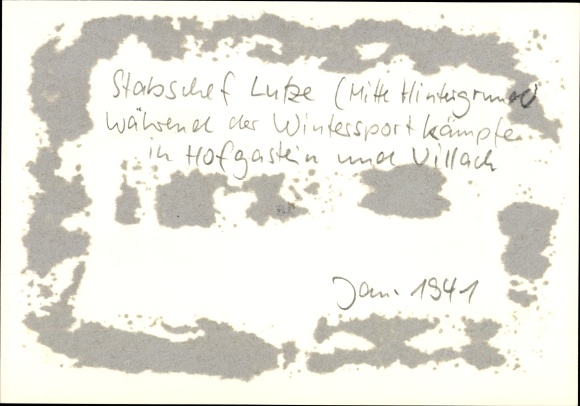 Stabschef Lutze (Mitte Hintergrund)
während der Wintersportkämpfe
in Hofgastein und Villach
Jan. 1941